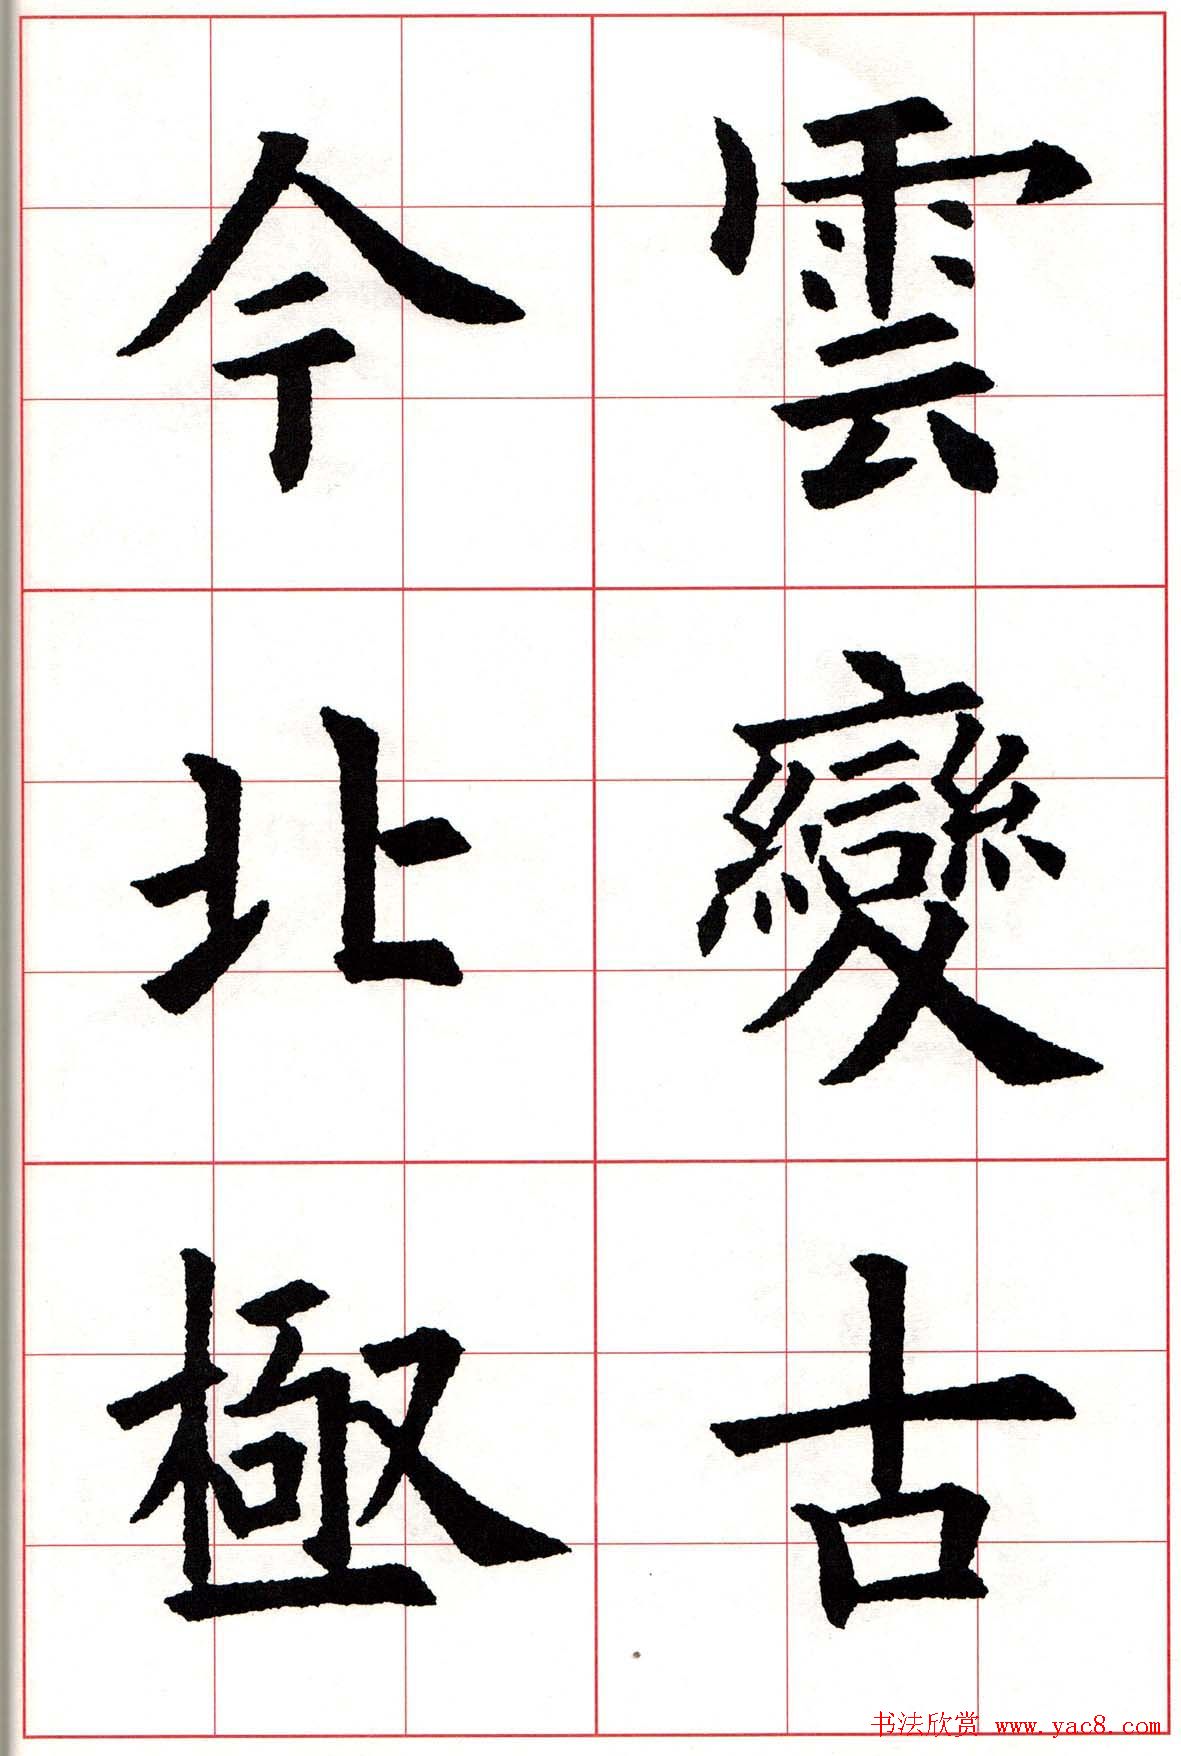 雲變古
今北極
书法欣赏 www.yac8.com